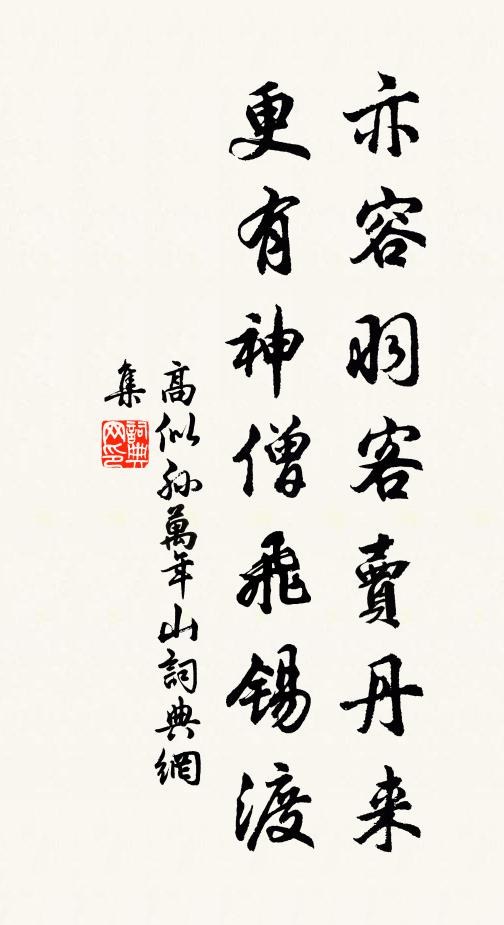 亦容羽客賣丹来
更有神僧飛錫渡
高似孙萬年山詞典網
集
詞典网印